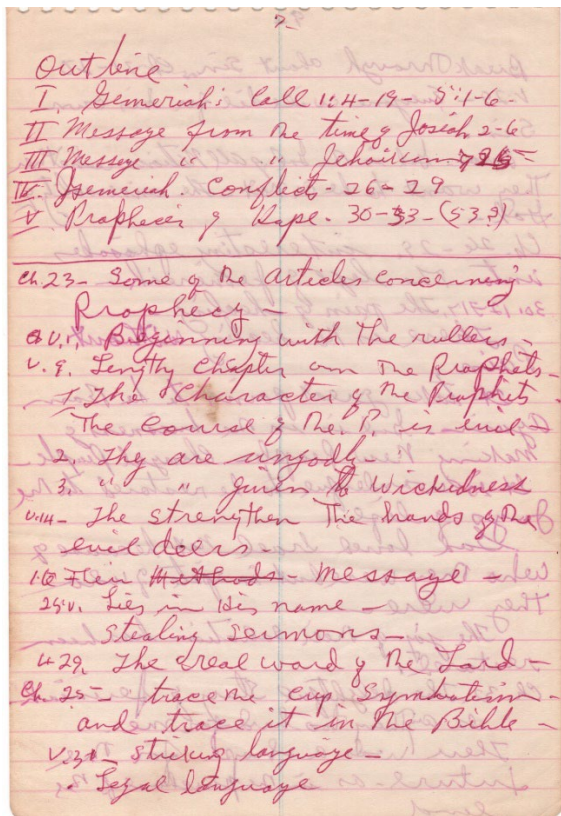 2-
Outline
I. Jeremiah: Call 1:4-19- 5:1-6-
II Message from the time of Josiah 2-6
III Message " " Jehoikim 7-25
IV. Jeremiah. Conflicts- 26-29
V. Prophecies of Hope- 30-33- (53?)
Ch. 23- Some of the Articles concerning
Prophecy-
V.1. Beginning with the rullers-
V. 9. Lengthy Chapter on the Prophets-
1. The Character of the Prophets
The Course of the P. is evil-
2. They are ungodly
3. " " given to Wickidness
v.14- The strengthen The hands of the
evil doers-
Their Methods- Message-
25 v. Lies in His name-
Stealing sermons-
29, The real word of the Lord-
Ch. 25- trace the cup Symbolism-
and trace it in the Bible-
striking language-
Legal language